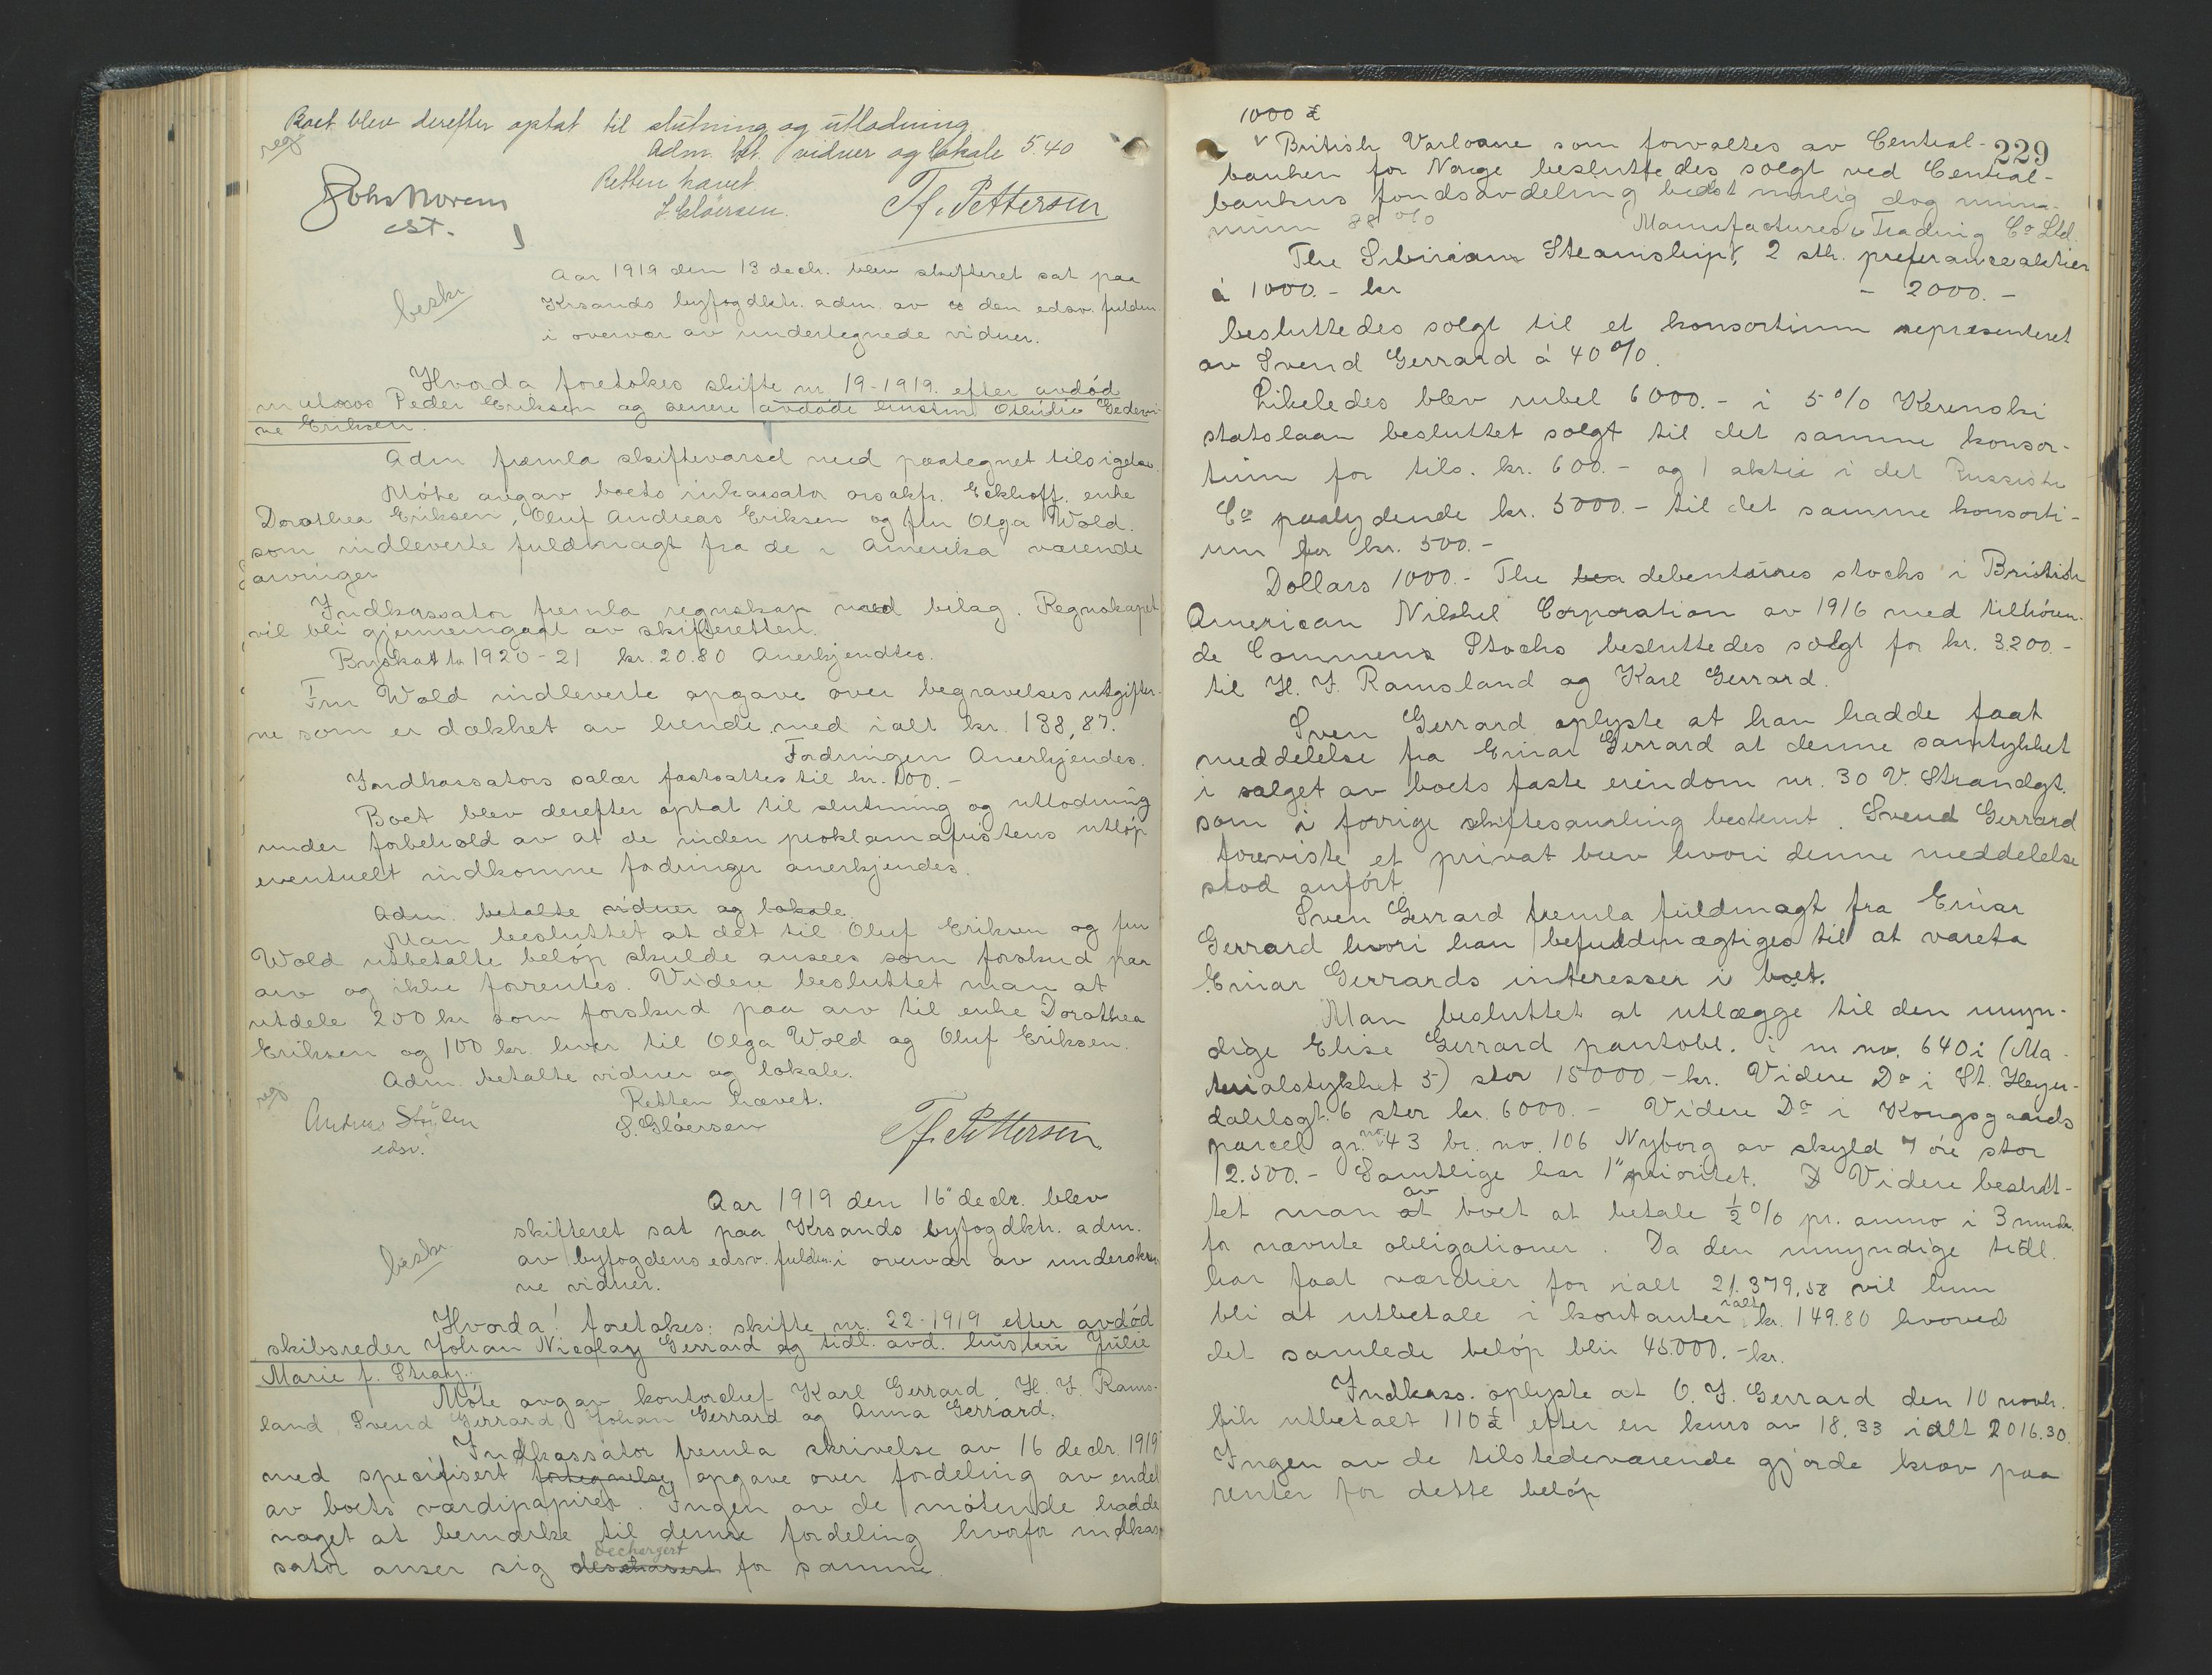 Boet blev derefter optat til slutning og utlodning
reg
Adm. bet. vidner og lokale 5.40
Retten hævet.
Johs Noren
est.
S. Gløersen.
Tf. Pettersen
Aar 1919 den 13 decbr. blev skifteret sat paa
beskr.
Krsands byfogdktr. adm. av den edsv. fuldm
i overvær av undertegnede vidner.
Hvorda foretokes skifte nr. 19-1919. efter avdød
Peder Eriksen og senere avdøde hustru Othilie Gedevi-
ne Eriksen.
Adm fremla skiftevarsel med paategnet tilsigelse.
Møte avgav boets inkassator orsakfr. Eckhoff, enke
Dorothea Eriksen, Oluf Andreas Eriksen og fru Olga Wold.
som indleverte fuldmagt fra de i Amerika værende
arvinger
Indkassator fremla regnskap med bilag. Regnskapet
vil bli gjennemgaat av skifteretten.
Byskat for 1920-21 kr. 20.80 Anerkjendtes.
Fru Wold indleverte opgave over begravelsesutgifter-
ne som er dækket av hende med ialt kr. 138,87.
Fordringen Anerkjendes.
Indkassators salær fastsattes til kr. 100.-
Boet blev derefter optat til slutning og utlodning
under forbehold av at de inden proklamafristens utløp
eventuelt indkomne fordringer anerkjendes.
Adm. betalte vidner og lokale.
Man besluttet at det til Oluf Eriksen og fru
Wold utbetalte beløp skulde ansees som forskud paa
arv og ikke forrentes. Videre besluttet man at
utdele 200 kr som forskud paa arv til enke Dorothea
Eriksen og 100 kr. hver til Olga Wold og Oluf Eriksen.
Adm. betalte vidner og lokale.
reg
Retten hævet.
Andreas Stølen
edsv.
S. Gløersen
Tf. Pettersen
Aar 1919 den 16" decbr. blev
skifteret sat paa Krsands byfogdktr. adm.
beskr.
av byfogdens edsv. fuldm. i overvær av underskrev
ne vidner.
Hvorda! foretokes: skifte nr. 22-1919 efter avdød
skibsreder Johan Nicolay Gerrard og tidl. avd. hustru Julie
Marie f. Stray.
Møte avgav kontorchef Karl Gerrard, H. J. Rams-
land, Svend Gerrard, Johan Gerrard og Anna Gerrard.
Indkassator fremla skrivelse av 16 decbr. 1919
med specifisert fortegnelse opgave over fordeling av endel
av boets værdipapirer. Ingen av de møtende hadde
noget at bemærke til denne fordeling hvorfor indkas-
dechargert
sator anser sig for samme.
229
1000 £
British Varloane som forvaltes av Central-
banken for Norge besluttedes solgt ved Central-
bankens fondsavdeling bedst mulig dog mini-
mum 88 %
Manufactured & Trading Co Ltd.
The Sibirians Steamship, 2 stk. preferanceaktier
á 1000.- kr - 2000.-
besluttedes solgt til et konsortium representeret
av Svend Gerrard á 40 %.
Likeledes blev rubel 6000.- i 5 % Kerenski
statslaan besluttet solgt til det samme konsor-
tium for tils. kr. 600.- og 1 aktie i det Russiske
Co paalydende kr. 5000.- til det samme konsorti-
um for kr. 500.-
Dollars 1000.- The debentures stocks i British
American Nikkel Corporation av 1916 med tilhøren-
de Commens Stocks besluttedes solgt for kr. 3.200.-
til H. J. Ramsland og Karl Gerrard.
Sven Gerrard oplyste at han hadde faat
meddelelse fra Einar Gerrard at denne samtykket
i salget av boets faste eiendom nr. 30 V. Strandgt.
som i forrige skiftesamling bestemt. Svend Gerrard
foreviste et privat brev hvori denne meddelelse
stod anført.
Sven Gerrard fremla fuldmagt fra Einar
Gerrard hvori han befuldmægtiges til at vareta
Einar Gerrards interesser i boet.
Man besluttet at utlægge til den umyn-
dige Elise Gerrard pantobl. i m no. 640i (Ma-
terialstykket 5) stor 15000.- kr. Videre Do i St. Heyer-
dahlsgt. 6 stor kr. 6000.- Videre Do i Kongsgaards
parcel gr. no. 43 br. no. 106 Nyborg av skyld 7 øre stor
12.500.- Samtlige har 1" prioritet. Videre beslut-
av
tet man at boet at betale ½ % pr. anno i 3 mndr.
for nævnte obligationer. Da den umyndige tidl.
har faat værdier for ialt 21.379,58 vil hun
bli at utbetale i kontanter ialt kr. 149.80 hvorved
det samlede beløp blir 45.000.- kr.
Indkass. oplyste at O. J. Gerrard den 10 novbr.
fik utbetalt 110 £ efter en kurs av 18,33 ialt 2016.30.
Ingen av de tilstedeværende gjorde krav paa
renter for dette beløp